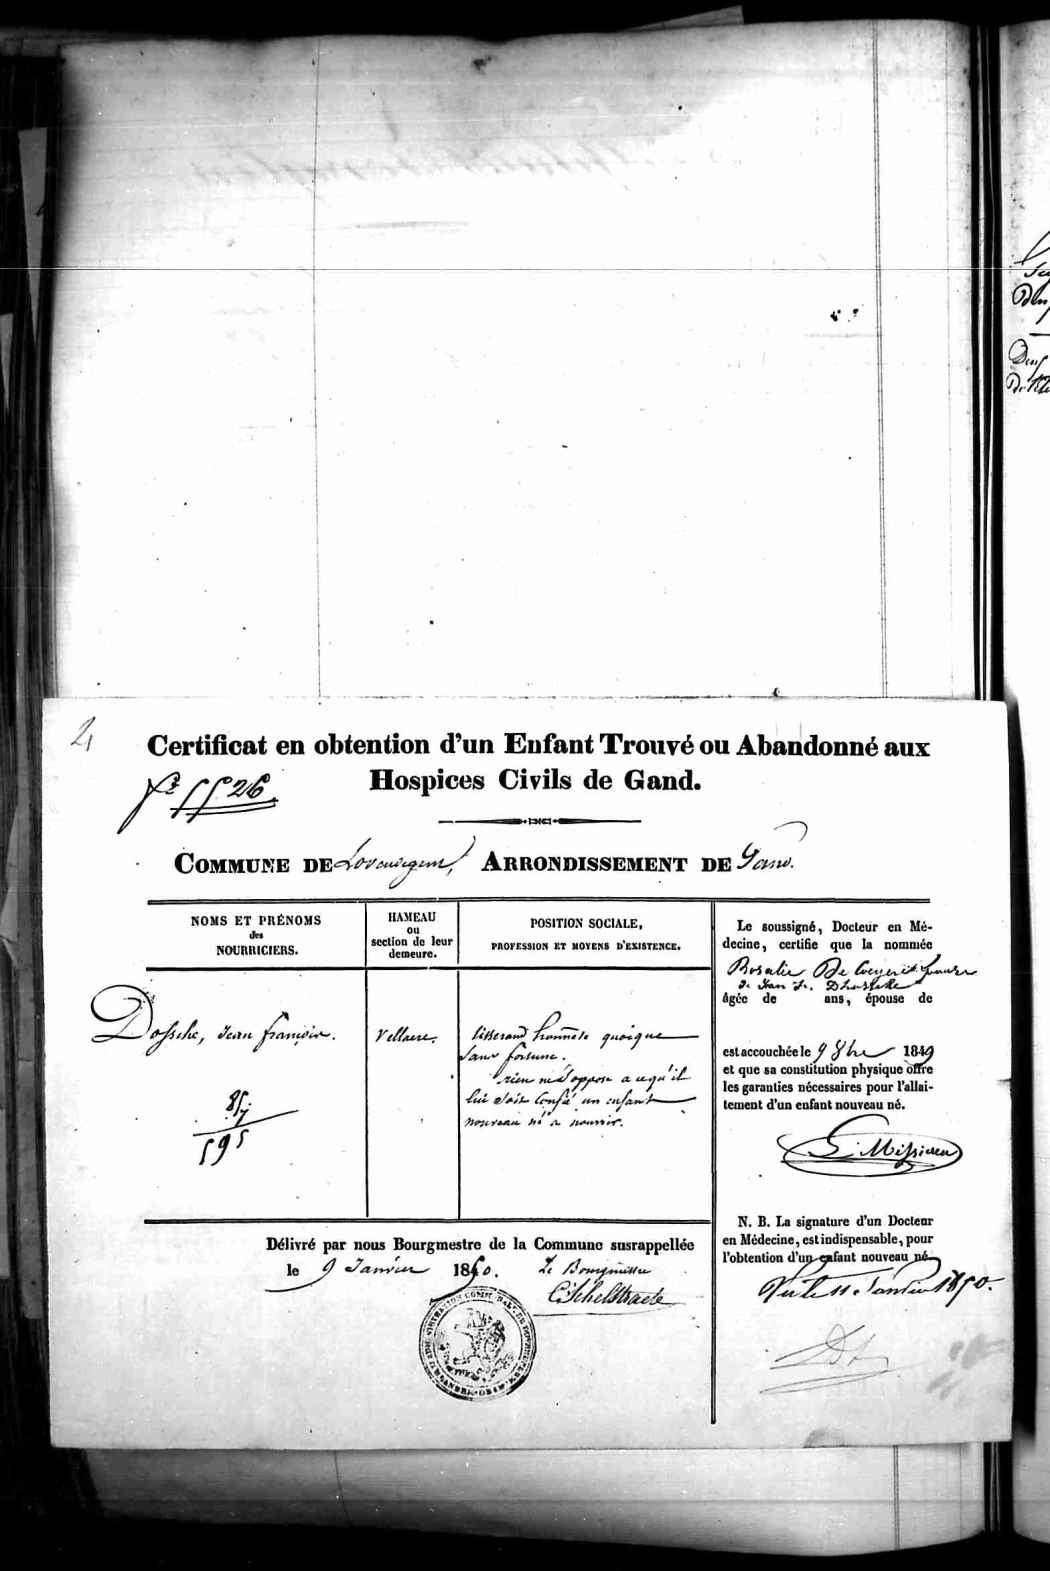 Certificat en obtention d'un Enfant Trouvé ou Abandonné aux
Hospices Civils de Gand.
5526
COMMUNE DE Lovendegem, ARRONDISSEMENT DE Gand.
NOMS ET PRÉNOMS
des
NOURRICIERS.
HAMEAU
ou
section de leur
demeure.
POSITION SOCIALE,
PROFESSION ET MOYENS D'EXISTENCE.
Dossche, Jean françois.
Vellaere.
tisserand honnête quoique
sans fortune.
rien ne s'oppose a ce qu'il
lui soit confié un enfant
nouveau né a nourrir.
595
Le soussigné, Docteur en Mé-
decine, certifie que la nommée
Rosalie De
de Jean
âgée de ans, épouse de
est accouchée le 9 8bre 1849
et que sa constitution physique offre
les garanties nécessaires pour l'allai-
tement d'un enfant nouveau né.
N. B. La signature d'un Docteur
en Médecine, est indispensable, pour
l'obtention d'un enfant nouveau né.
Vu le 11 Janvier 1850.
Délivré par nous Bourgmestre de la Commune susrappellée
le 9 Janvier 1850. Le Bourgmestre
C. Schelstraete